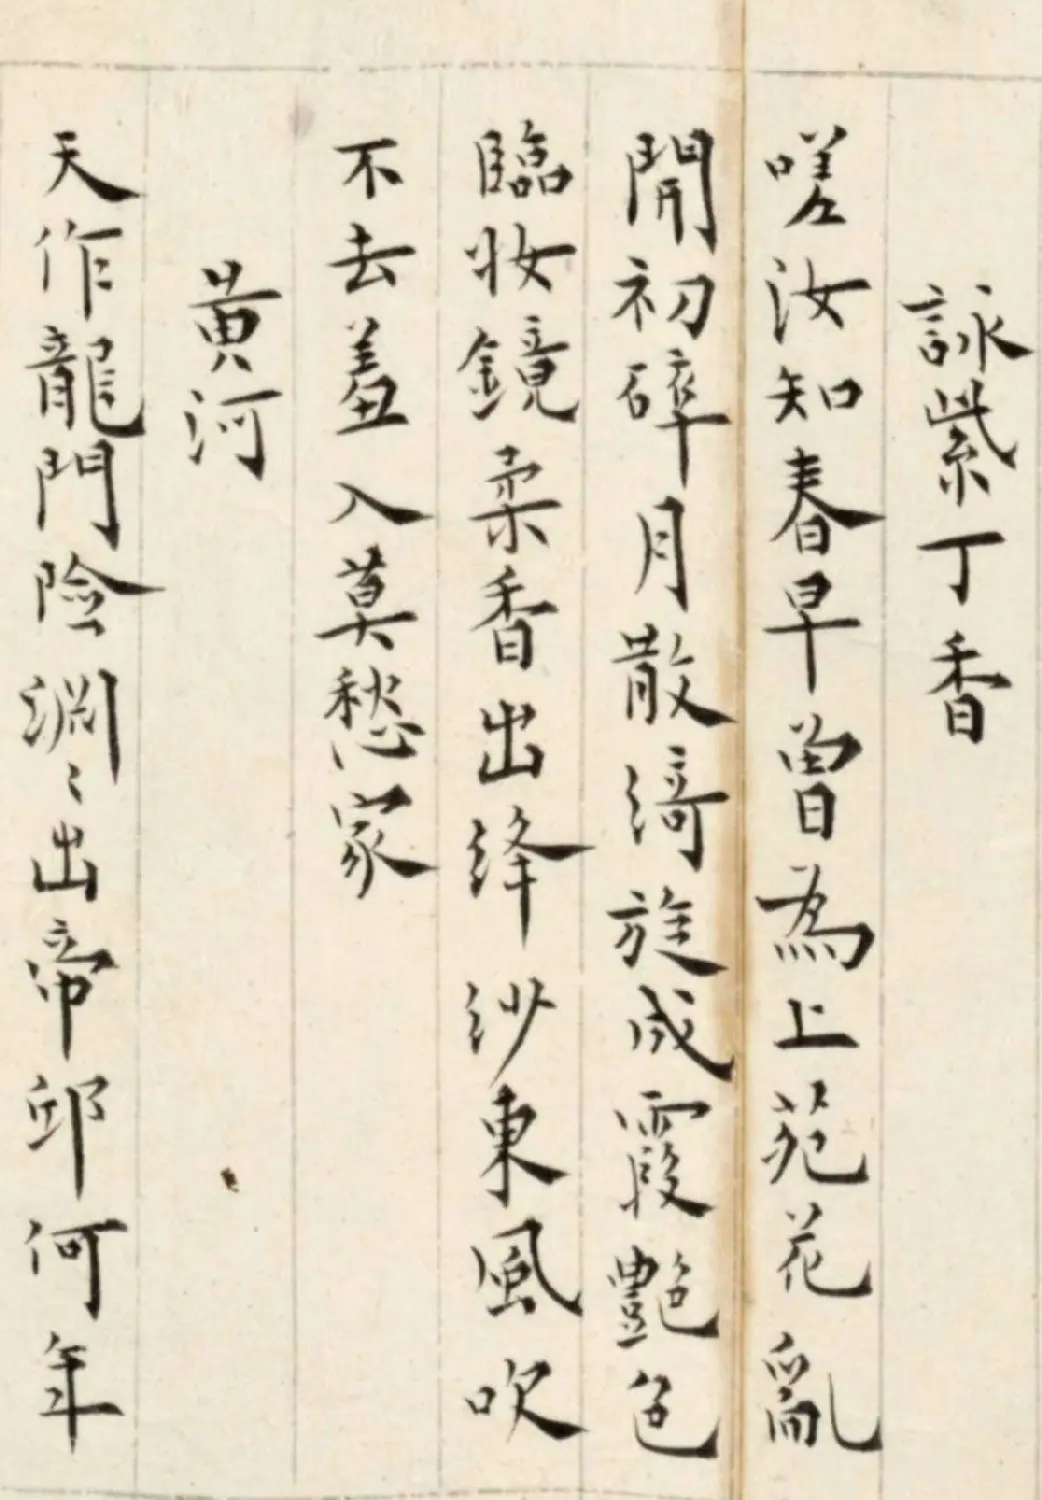 詠紫丁香
嗟汝知春早曽為上苑花亂
開初碎月散綺旋成霞艷色
臨妝鏡柔香出絳紗東風吹
不去羞入莫愁家
黄河
天作龍門險淵〻出帝邱何年